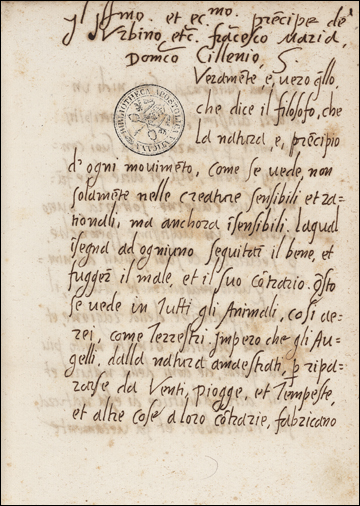 Jll. Jll.mo. et ec.mo. precipe de
Vrbino, etc. fracesco Maria,
Domco Cillenio, S.
Veramete e uero qllo,
che dice il filosofo, che
La natura e, prencipio
d'ogni mouimeto, come se uede, non
solamete nelle creature sensibili et ra-
tionali, ma anchora isensibili. laqual
isegna ad ogniuno seguitar il bene, et
fugger il male, et il suo cotrario. qsto
se uede in tutti gli Animali, cosi ae-
rei, come Terrestri. Impero che gli Au-
gelli, dalla natura amaestrati, p ripa-
rarse da Venti, piogge, et Tempeste,
et altre cose a loro cotrarie, fabricano
BIBLIOTHECA APOSTOLICA VATICANA